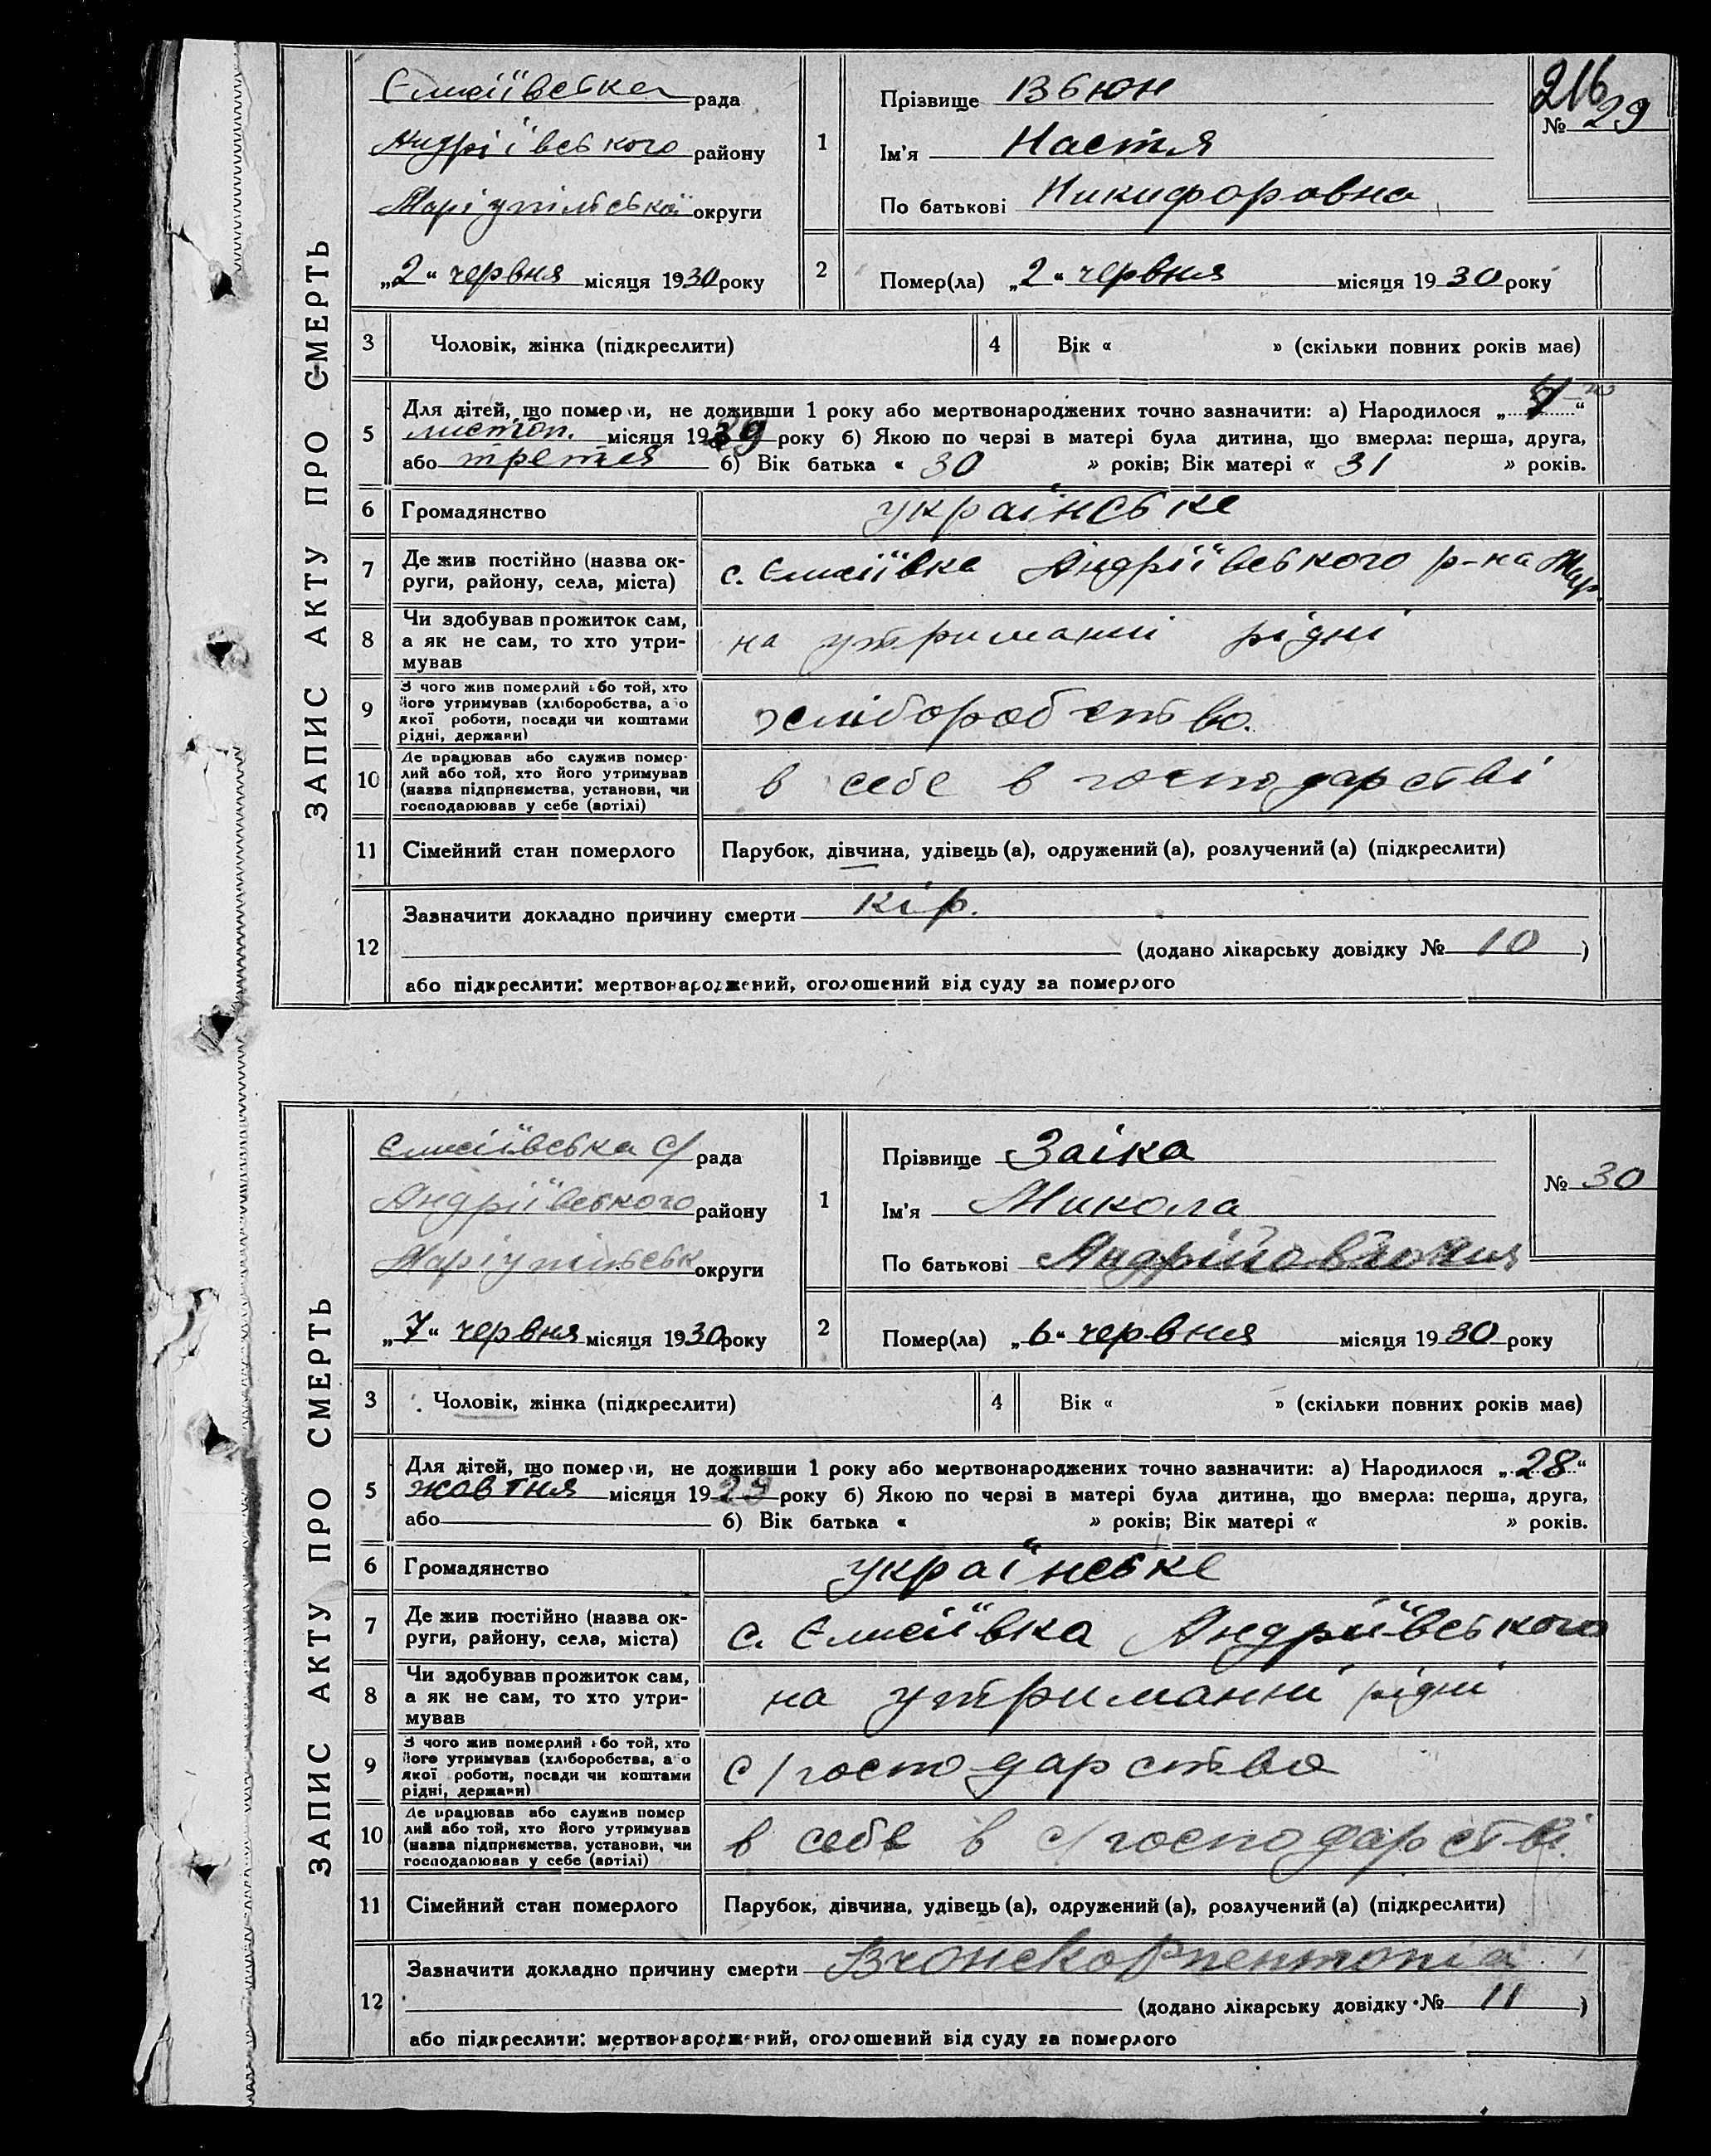 ЗАПИС АКТУ ПРО СМЕРТЬ
Єлисіївська рада
Андріївського району
Маріупільської округи
„2“ червня місяця 1930 року
216
№ 29
1
Прізвище Вбюн
Ім'я Настя
По батькові Никифоровна
2
Помер(ла) „2“ червня місяця 1930 року
3 Чоловік, жінка (підкреслити)
4 Вік « » (скільки повних років має)
5
Для дітей, що померли, не доживши 1 року або мертвонароджених точно зазначити: а) Народилося „ “
листоп. місяця 1929 року б) Якою по черзі в матері була дитина, що вмерла: перша, друга,
або третя б) Вік батька « 30 » років; Вік матері « 31 » років.
6 Громадянство українське
7 Де жив постійно (назва ок-
руги, району, села, міста)
с. Єлисіївка Андріївського р-на Мар.
8 Чи здобував прожиток сам,
а як не сам, то хто утри-
мував
на утриманні рідні
9 З чого жив померлий або той, хто
його утримував (хліборобства, або
якої роботи, посади чи коштами
рідні, держави)
хліборобство.
10 Де працював або служив помер-
лий або той, хто його утримував
(назва підприємства, установи, чи
господарював у себе (артілі)
в себе в господарстві
11 Сімейний стан померлого Парубок, дівчина, удівець (а), одружений (а), розлучений (а) (підкреслити)
12 Зазначити докладно причину смерти кір.
(додано лікарську довідку № 10 )
або підкреслити: мертвонароджений, оголошений від суду за померлого
ЗАПИС АКТУ ПРО СМЕРТЬ
Єлисіївська с/ рада
Андріївського району
Маріупільськ округи
„7“ червня місяця 1930 року
№ 30
1
Прізвище Заіка
Ім'я Микола
По батькові
2
Помер(ла) „6“ червня місяця 1930 року
3 Чоловік, жінка (підкреслити)
4 Вік « » (скільки повних років має)
5
Для дітей, що померли, не доживши 1 року або мертвонароджених точно зазначити: а) Народилося „28“
жовтня місяця 1929 року б) Якою по черзі в матері була дитина, що вмерла: перша, друга,
або б) Вік батька « » років; Вік матері « » років.
6 Громадянство українське
7 Де жив постійно (назва ок-
руги, району, села, міста)
с. Єлисіївка Андріївського
8 Чи здобував прожиток сам,
а як не сам, то хто утри-
мував
на утриманні рідні
9 З чого жив померлий або той, хто
його утримував (хліборобства, або
якої роботи, посади чи коштами
рідні, держави)
с/господарство
10 Де працював або служив помер
лий або той, хто його утримував
(назва підприємства, установи, чи
господарював у себе (артілі)
в себе в с/господарстві.
11 Сімейний стан померлого Парубок, дівчина, удівець (а), одружений (а), розлучений (а) (підкреслити)
12 Зазначити докладно причину смерти
(додано лікарську довідку № 11 )
або підкреслити: мертвонароджений, оголошений від суду за померлого